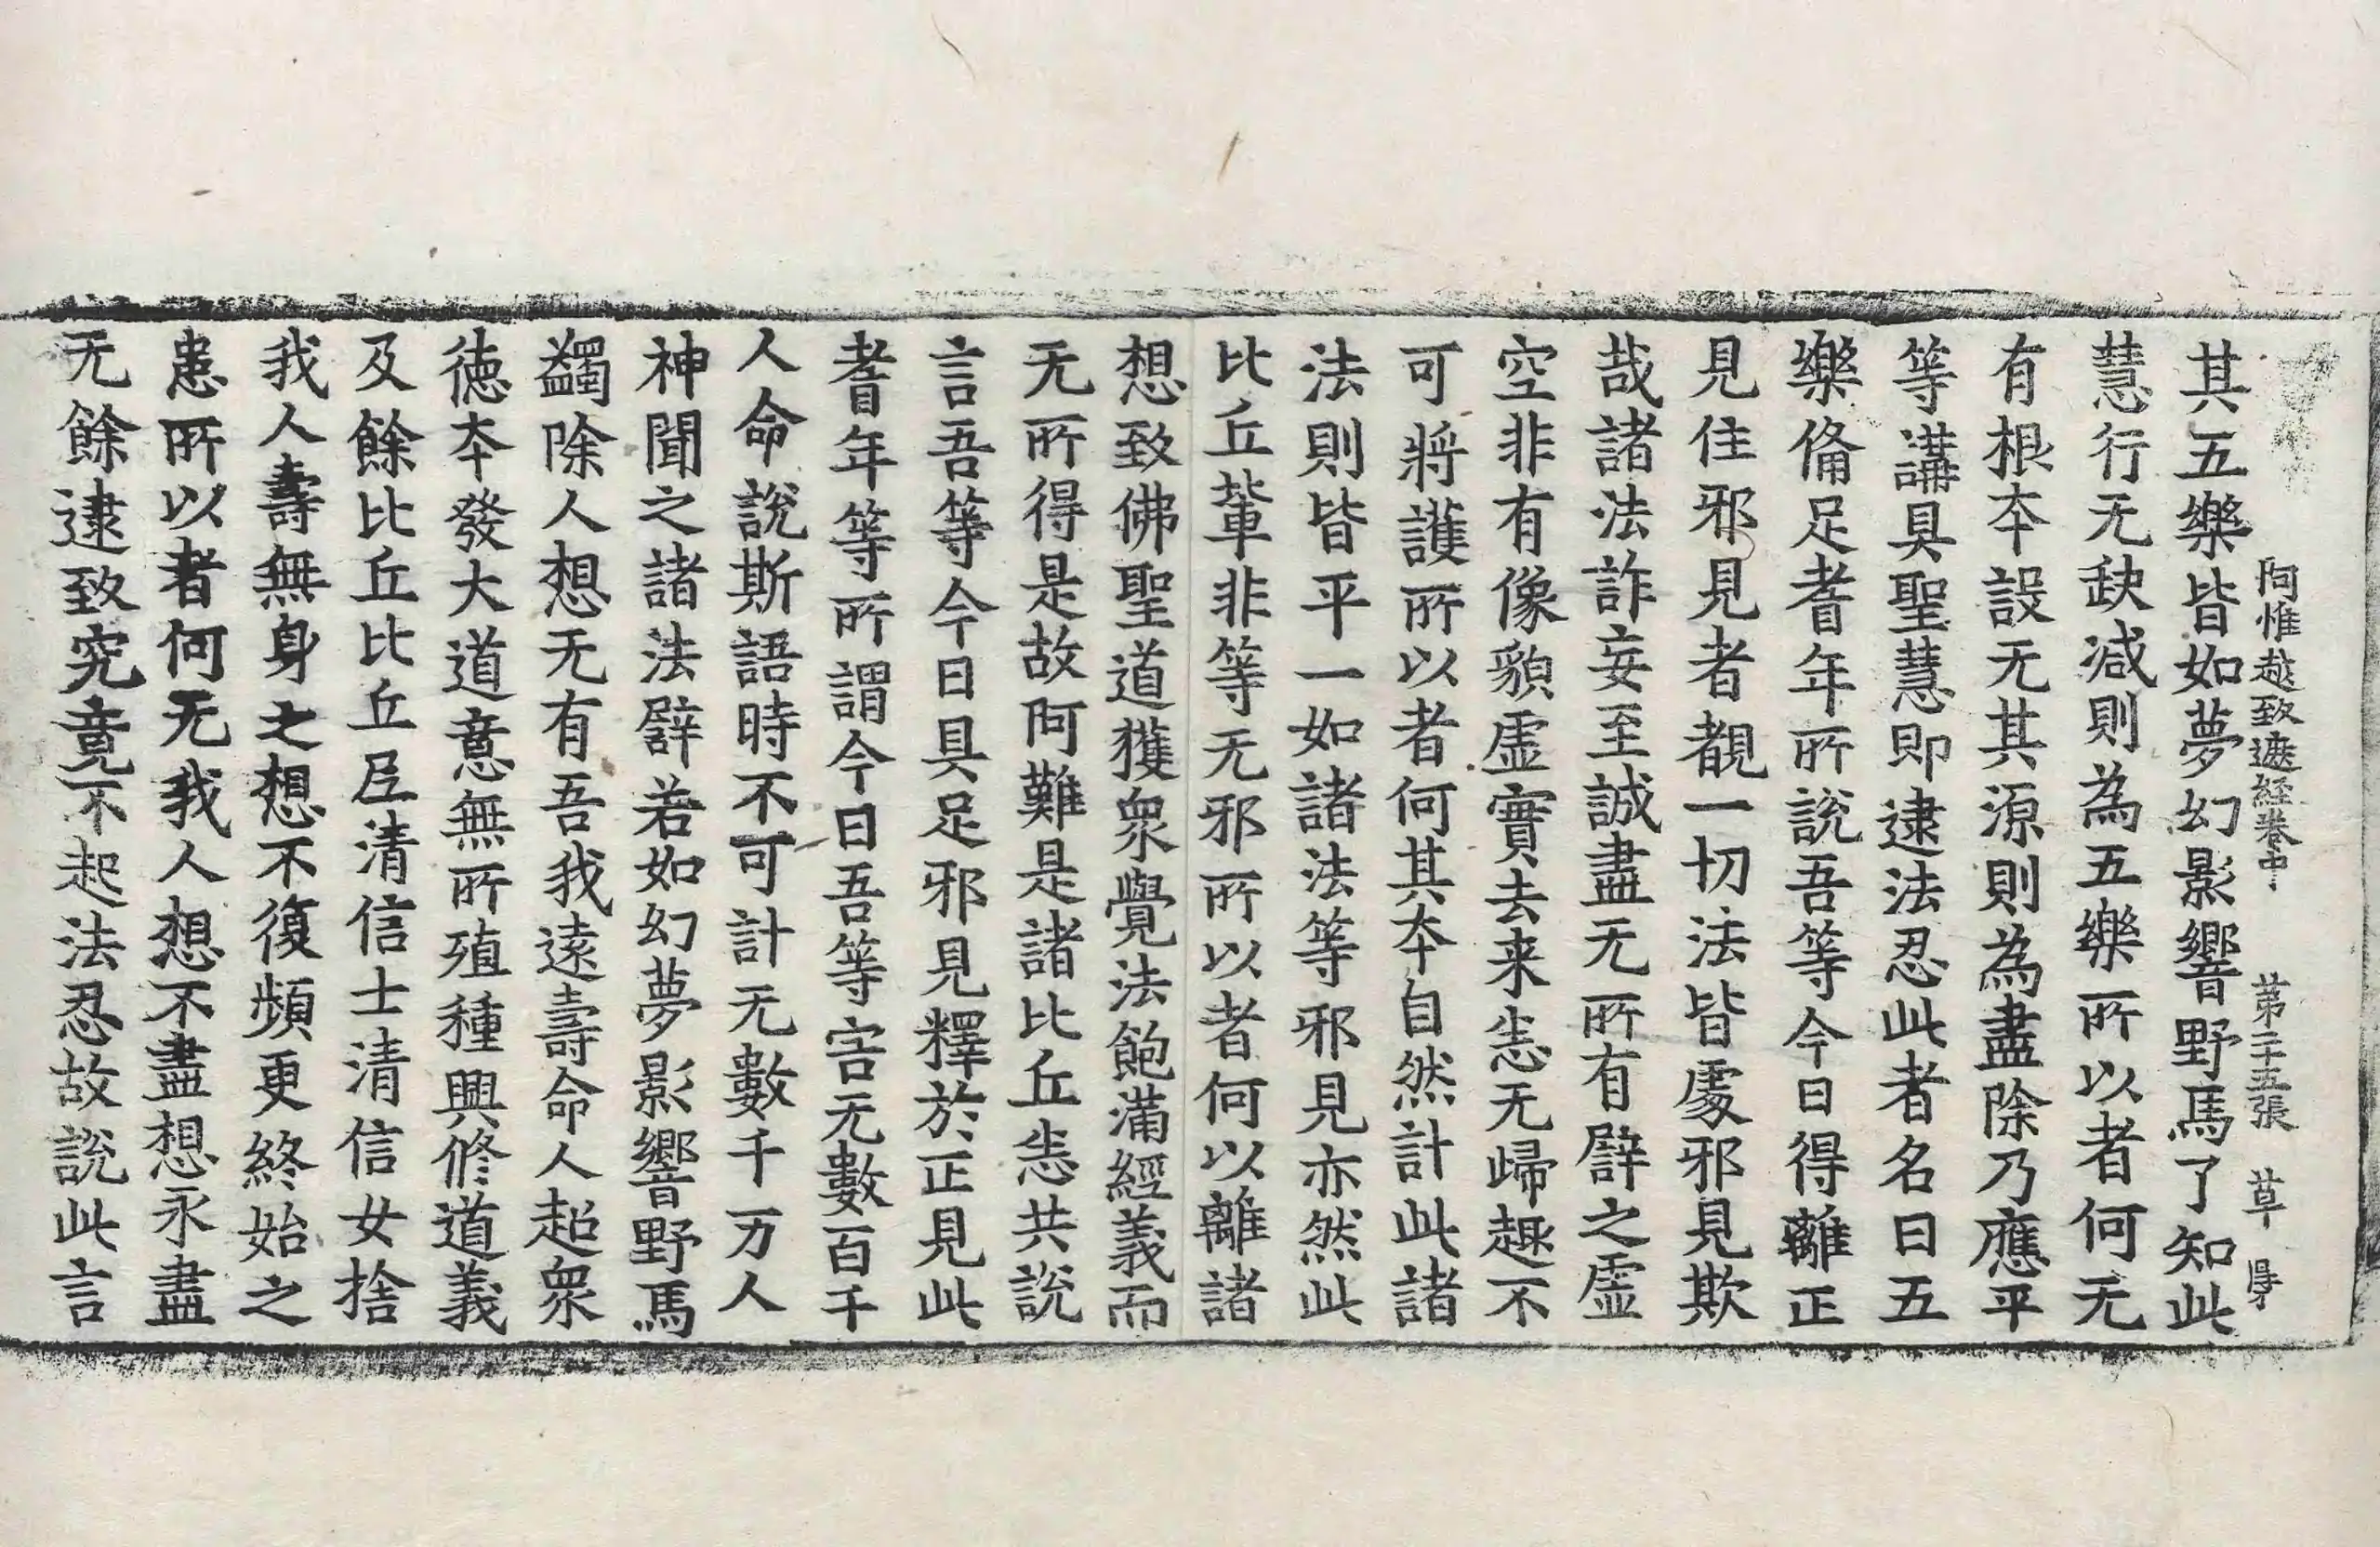 阿惟越致遮経卷中 苐二十五張 草 㝵
其五樂皆如夢幻影響野馬了知此
慧行无缺减則為五樂所以者何无
有根夲設无其源則為盡除乃應平
等講具聖慧即逮法忍此者名曰五
樂俻足耆年所說吾等今日得離正
見住邪見者覩一切法皆處邪見欺
㢤諸法詐妄至誠盡无所有譬之虛
空非有像貌虛實去来恙无歸趣不
可將護所以者何其夲自然計此諸
法則皆平一如諸法等邪見亦然此
比丘輩非等无邪所以者何以離諸
想致佛聖道獲衆覺法飽滿經義而
无所得是故阿難是諸比丘恙共說
言吾等今日具足邪見釋於正見此
耆年等所謂今日吾等害无數百千
人命說斯語時不可計无數千万人
神聞之諸法譬若如幻夢影響野馬
蠲除人想无有吾我遠壽命人起衆
徳夲發大道意無所殖種興修道義
及餘比丘比丘尼清信士清信女捨
我人壽無身之想不復頻更終始之
患所以者何无我人想不盡想永盡
无餘逮致究竟不起法忍故說此言